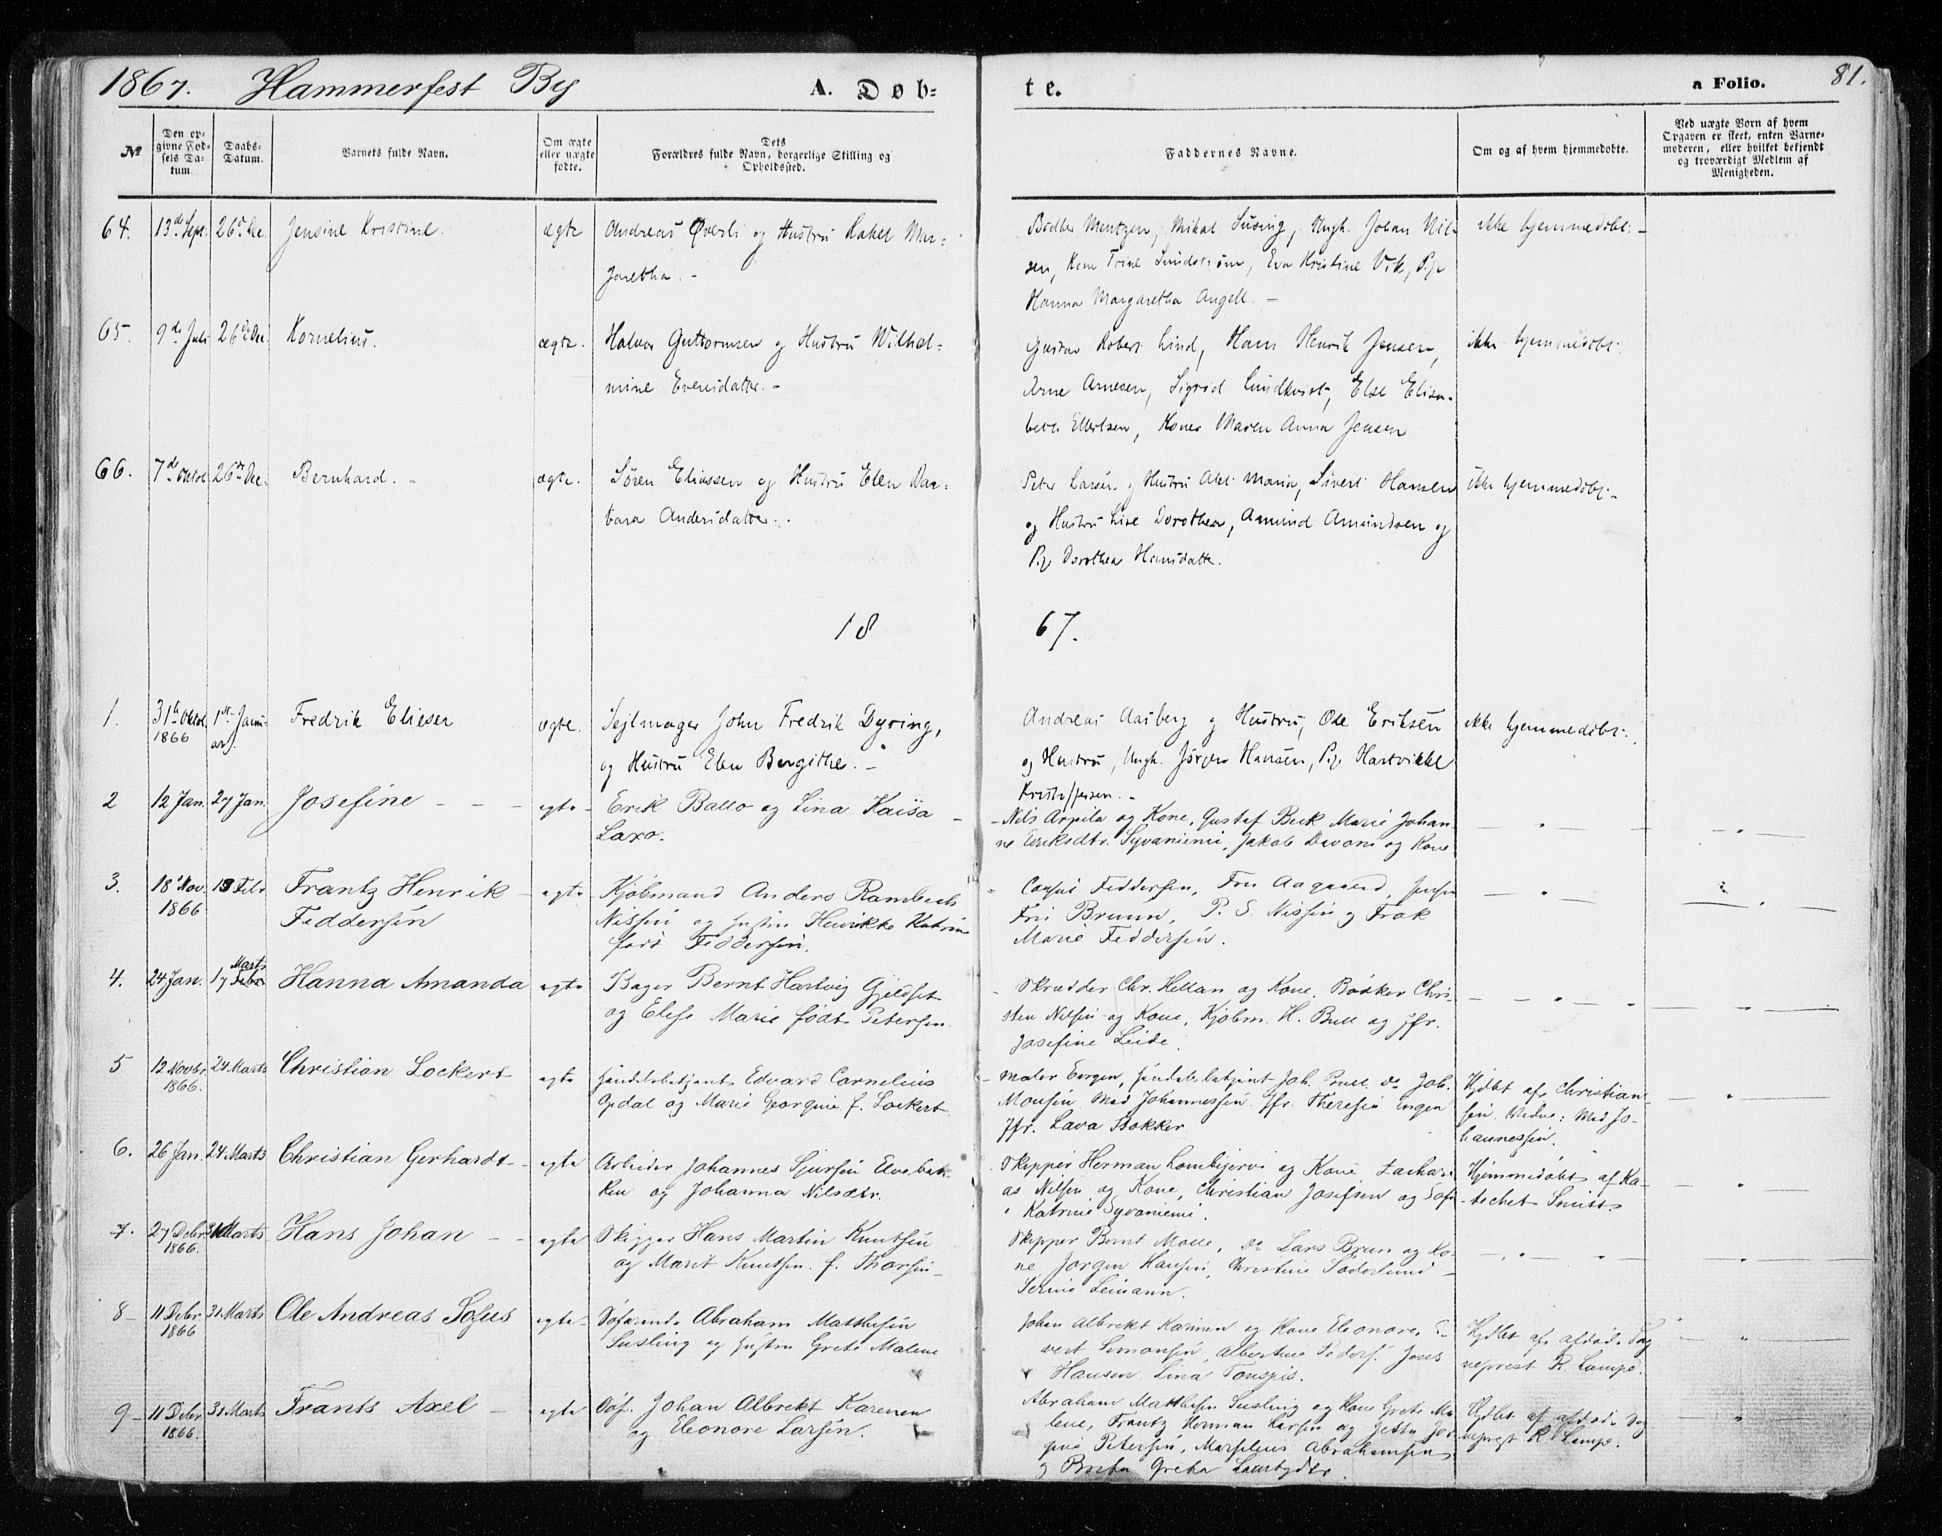 1867. Hammerfest By A. Døb= te. a Folio. 81.
№ Den op-givne Fød-sels Da-tum. Daabs-Datum. Barnets fulde Navn. Om ægte eller uægte fødte. Dets Forældres fulde Navn, borgerlige Stilling og Opholdssted. Faddernes Navne. Om og af hvem hjemmedøbte. Ved uægte Børn af hvem Opgaven er skeet, enten Barne-moderen, eller hvilket bekjendt og troværdigt Medlem af Menigheden.
64. 13de Sept. 26de Dec. Jensine Kristine. ægte Andreas Qverli og Hustru Rakel Mar=
garetha. -
Bødker Mentzen, Mikal Susing, Ungk. Johan Nil=
sen, Kone Trine Lundstrøm, Eva Kristine Vik, Pige
Hanna Margaretha Angell. -
ikke hjemmedøbt. -
65. 9de Juli 26de Dec. Kornelius. ægte. Halvor Guttormsen og Hustru Wilhel=
mine Evensdatter. -
Gustav Robert Lind, Hans Henrik Jensen,
Arne Arnesen, Sigrid Lundkvist, Else Elisa-
beth Ellertsen, Kone Maren Anna Jensen
ikke hjemmedøbt.
66. 7de Oktbr 26de Dec. Bernhard. - ægte. Søren Eliassen og Hustru Elen Bar=
bara Andersdatter.
Peter Larsen og Hustru Abel Maria, Sivert Hansen
og Hustru Line Dorothea, Amund Amundsen og
Pige Dorothea Hansdatter.
ikke hjemmedøbt. -
18 67.
1. 31te Oktbr. 1866 1ste Janu-ar. Fredrik Elieser ægte. Sejlmager John Fredrik Dyring,
og Hustru Elen Bergithe. -
Andreas Aasberg og Hustru, Ole Eriksen
og Hustru, Ungk. Jørgen Hansen, Pige Hartvikke
Kristoffersen. -
ikke hjemmedøbt.
2 12 Jan. 27 Jan. Josefine - - - egte - Erik Ballo og Lina Kaisa
Laxo.
- Nils Arpila og Kone, Gustaf Beck Marie Johan-
ne Eriksdtr. Syvaniemi, Jakob Davoni og Kone
3. 18 Nov. 1866 13 Febr Frantz Henrik egte Kjøbmand Anders Rambech
Feddersen Nissen og Hustru Henrikke Katrine
født Feddersen.
Consul Feddersen, Fru Aagaard,
Fru Bruun, P. S. Nissen og Frøk
Marie Feddersen.
4. 24 Jan. 17 Marts Febr Hanna Amanda egte Bager Bernt Hartvig Gjeldset
og Elise Marie født Petersen.
- Skrædder Chr. Hellan og Kone, Bødker Chri-
sten Nilsen og Kone, Kjøbm. H. Bull og Jfr.
Josefine Leide.
5 12 Novbr. 1866. 24 Marts Christian Lockert egte Handelsbetjent Edvard Cornelius
Opdal og Marie Georgine f. Lockert.
- Maler Evrgen, Handelsbetjent Joh. Bull, do Joh.
Monsen, Mad Johannessen, Jfr. Theresie Engen
Jfr. Lava Bokker
Hjdbt af Christian-
sen. Vidne: Mad Jo-
hannessen.
6. 26 Jan. 24 Marts Christian Gerhardt egte Arbeider Johannes Sjursen Elvebak-
ken og Johanna Nilsdtr.
Skipper Herman Lombijervi og Kone, Zachari-
as Nilsen og Kone, Christian Josefsen og Sofi
Katrine Syvaniemi.
Hjemmedøbt af Ka-
techet Smitt
7. 27 Debr. 1866. 31 Marts Hans Johan - - egte Skipper Hans Martin Knutsen
og Marit Knutsen f. Thorsen
Skipper Bernt Molle, do Lars Brun og Ko-
ne Jørgen Hansen, Christine Søderlund
Serine Leinann.
8 - 11 Debr 1866 31 Marts Ole Andreas Sofus egte Søfarende Abraham Matthisen
Susling og Hustru Grete Malene
Johan Albrekt Karinen og Kone Eleonore, E-
vert Simonsen, Albertine Pedersd. Jens
Hansen Lina Tonszis.
Hjdbt af afdøde Sog
neprest R. Lampe.
9 - 11 Debr 1866. 31 Marts Frants Axel - egte Søf. Johan Albrekt Karenen
og Eleonore Larsen.
Abraham Matthisen Susling og Kone Grete Ma-
lene, Frantz Herman Larsen og Jetta Jør
gine Petersen, Marselius Abrahamsen
og Greta
Hjdbt af afdøde Sog
neprest R. Lampe.